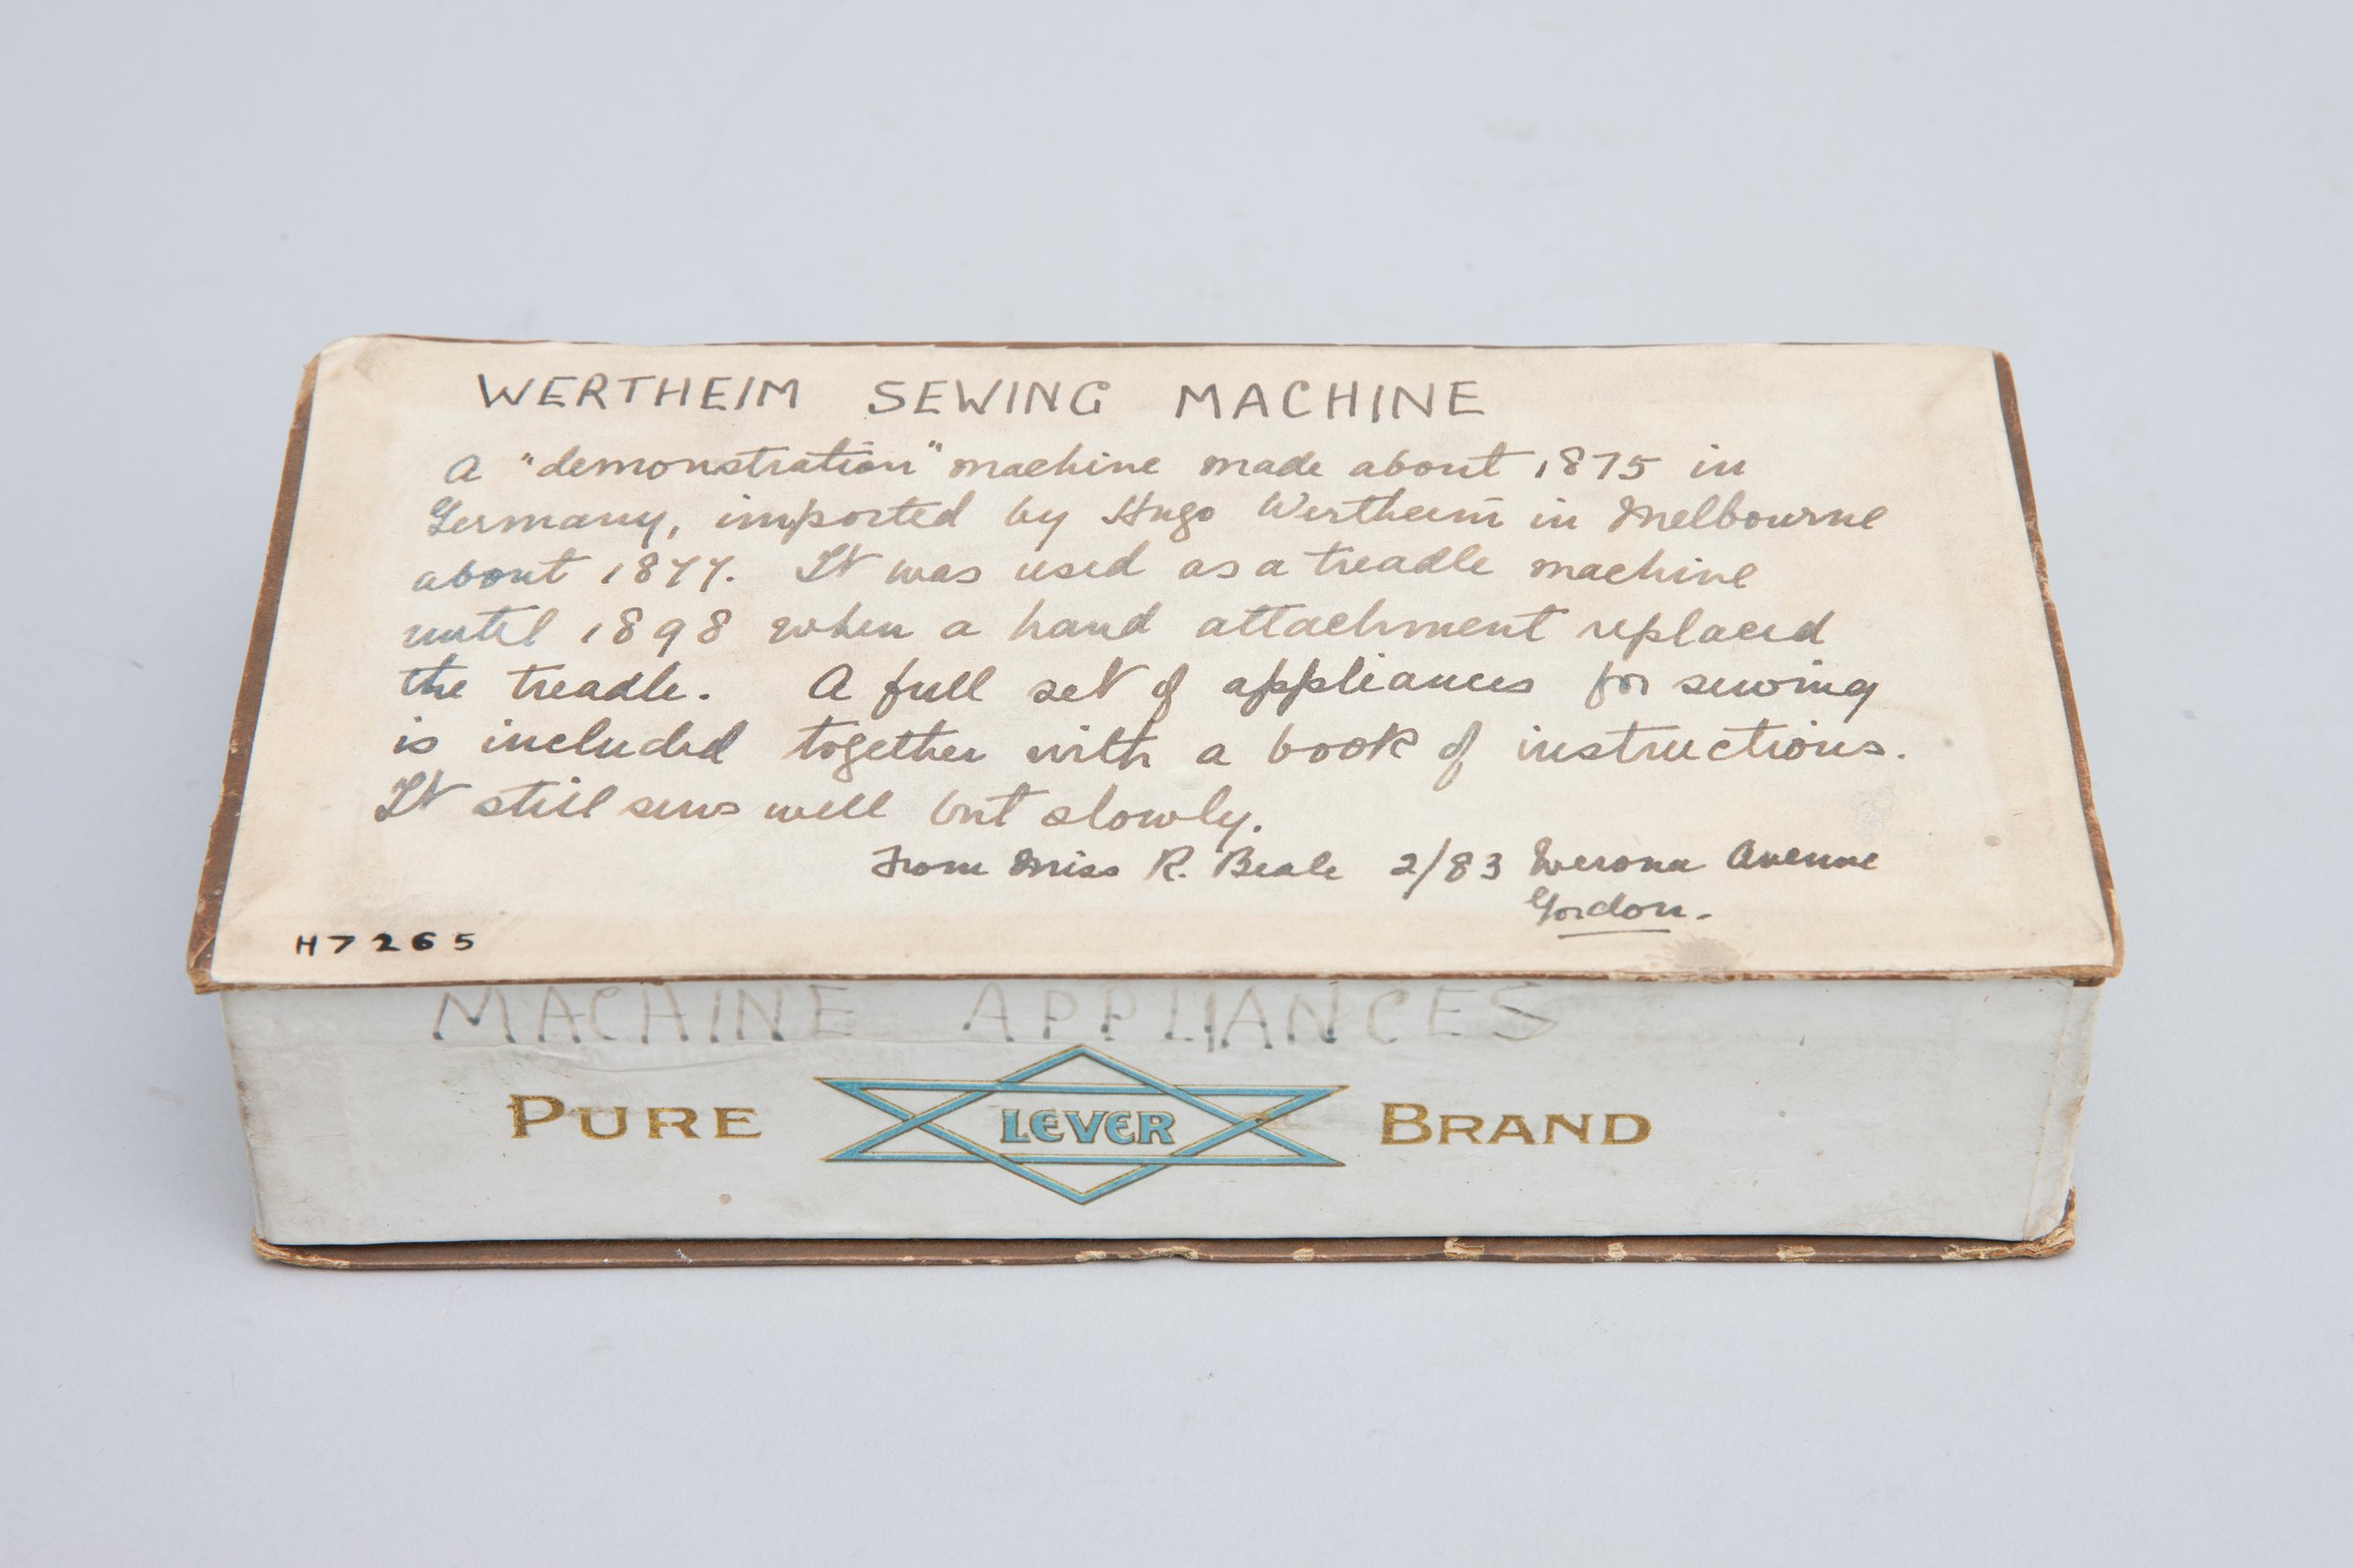 WERTHEIM SEWING MACHINE
A "demonstration" machine made about 1875 in
Germany, imported by Hugo Wertheim in Melbourne
about 1877. It was used as a treadle machine
until 1898 when a hand attachment replaced
the treadle. A full set of appliances for sewing
is included together with a book of instructions.
It still sews well but slowly.
From Miss R. Beale 2/83 Werona Avenue
Gordon.
H7265
MACHINE APPLIANCES
PURE LEVER BRAND